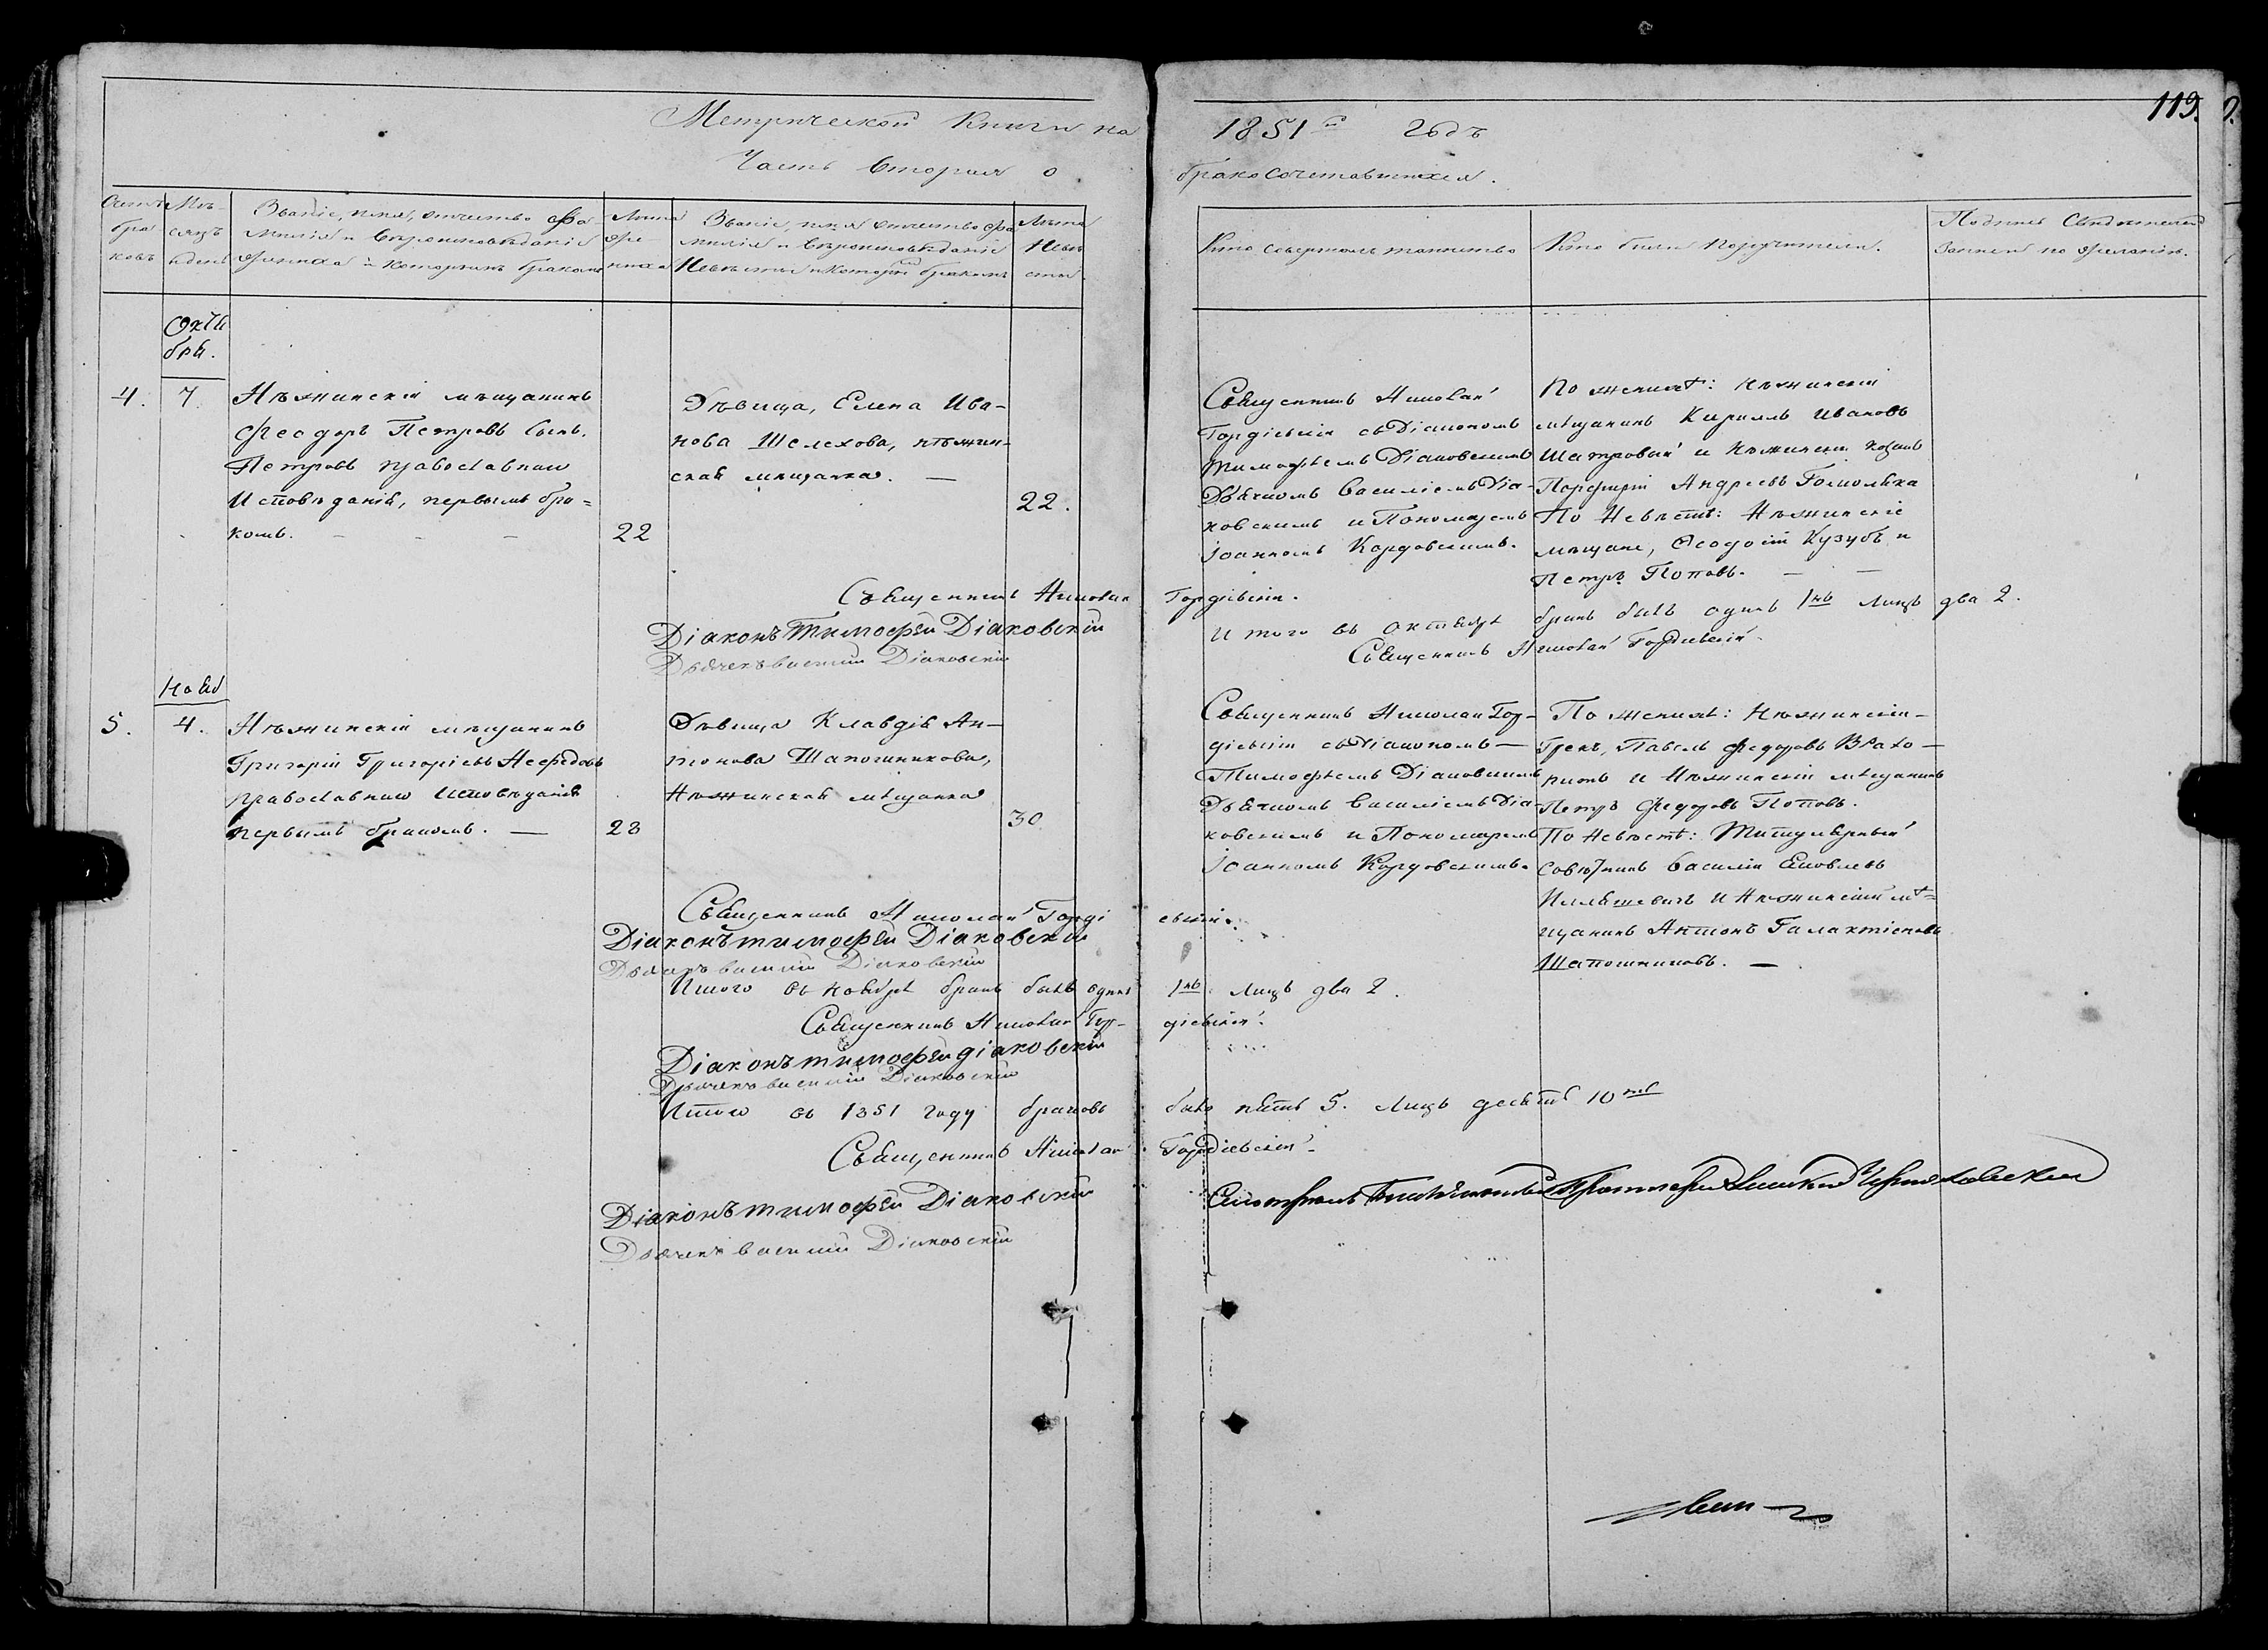 119.
Метрической Книги на 1851й годъ
Часть вторая о бракосочетавшихся.
Счетъ браковъ
Мѣсяцъ и день
Званіе, имя, отчество, фамилія и вѣроисповѣданіе жениха и которымъ бракомъ
Лѣта жениха
Званіе, имя отчество фамилія и вѣроисповѣданіе Невѣсты и которымъ бракомъ
Лѣта Невѣсты
Кто совершалъ таинство
Кто были поручители.
Подпись Свидѣтелей записи по желанію.
Октя
бря.
4. 7.
Нѣжинскій мѣщанинъ
Феодоръ Петровъ сынъ
Петровъ православнаго
Исповѣданія, первымъ бра=
комъ.
22
Дѣвица, Елена Ива-
нова Шелехова, нѣжин-
ская мѣщанка.
22.
Священникъ Николай
Гордіевскій съ Діакономъ
Тимофѣемъ Діаковскимъ
Дьячкомъ Василіемъ Діа-
ковскимъ и Пономаремъ
Іоанномъ Кордовскимъ.
По женихѣ: нѣжинскій
мѣщанинъ Кириллъ Ивановъ
Шатровый и Нѣжинскій козакъ
Порфирій Андреевъ
По Невѣстѣ: Нѣжинскіе
мѣщане, Феодосій Кузубъ и
Петръ Поповъ.
Священникъ Николай Гордіевскій.
Діаконъ Тимофѣй Діаковскій
Дьячекъ Василій Діаковскій
Итого въ октябрѣ бракъ былъ одинъ 1нъ лицъ два 2.
Священникъ Николай Гордіевскій.
Нояб
5. 4.
Нѣжинскій мѣщанинъ
Григорій Григоріевъ Нефедовъ
православнаго исповѣданія
первымъ бракомъ.
28
Дѣвица Клавдія Ан-
тонова Шапошникова,
Нѣжинская мѣщанка
30
Священникъ Николай Гор-
діевскій съ Діакономъ
Тимофѣемъ Діаковскимъ
Дьячкомъ Василіемъ Діа-
ковскимъ и Пономаремъ
Іоанномъ Кордовскимъ.
По женихѣ: Нѣжинскій
Грекъ, Павелъ Федоровъ
и Нѣжинскій мѣщанинъ
Петръ Федоровъ Поповъ.
По Невѣстѣ: Титулярный
Совѣтникъ Василій Яковлевъ
Илляшевичъ и Нѣжинскій мѣ=
щанинъ Антонъ Галактіоновъ
Шапошниковъ.
Священникъ Николай Гордіевскій.
Діаконъ Тимофѣй Діаковскій
Дьячекъ Василій Діаковскій
Итого въ ноябрѣ бракъ былъ одинъ 1нъ. лицъ два 2.
Священникъ Николай Гор-діевскій.
Діаконъ Тимофѣй Діаковскій
Дьячекъ Василій Діаковскій
Итого въ 1851 году браковъ было пять 5. лицъ десять 10ть
Священникъ Николай Гордіевскій
Діаконъ Тимофѣй Діаковскій
Дьячекъ Василій Діаковскій